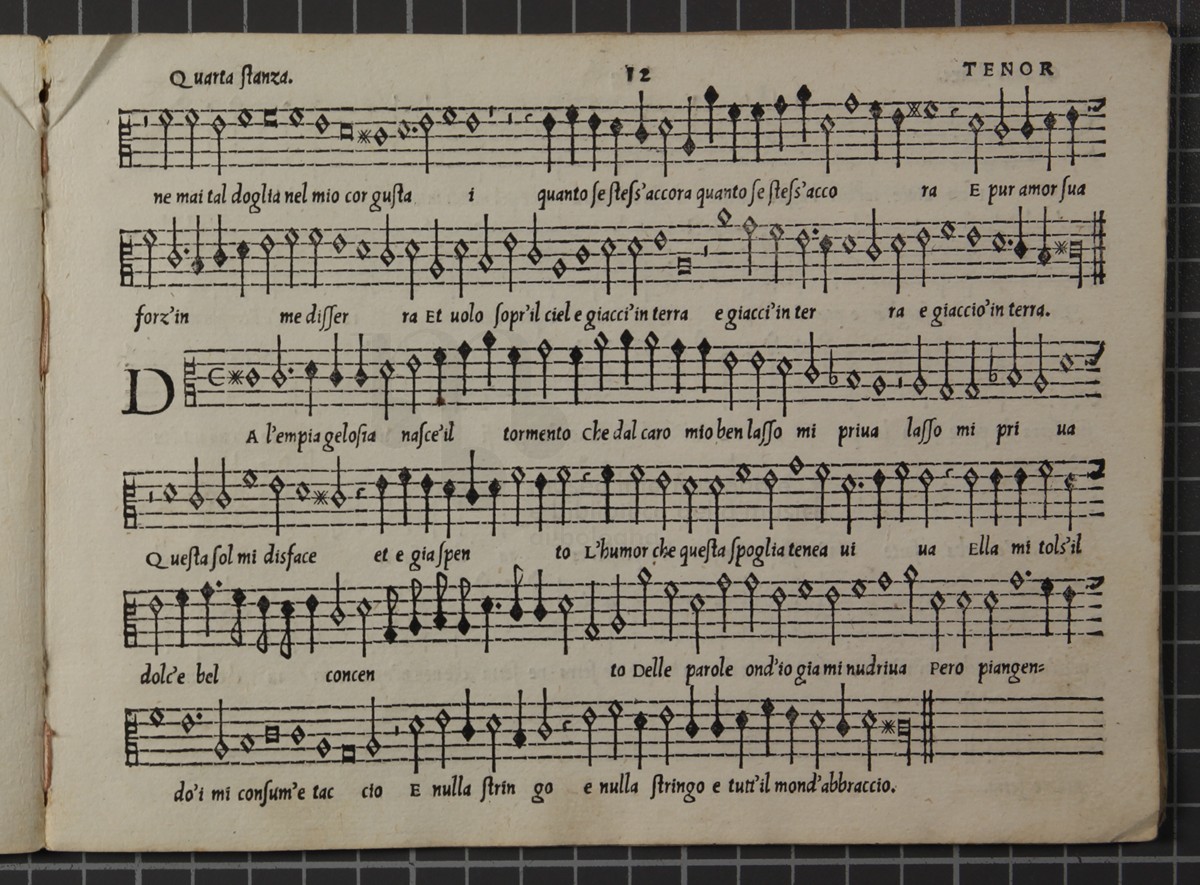 Quarta ſtanza. 12 TENOR
ne mai tal doglia nel mio cor guſta i quanto ſe ſteſs'accora quanto ſe ſteſs'acco ra E pur amor ſua
forz'in me diſſer ra Et uolo ſopr'il ciel e giacci'in terra e giacci'in ter ra e giaccio'in terra.
DA l'empia geloſia naſce'il tormento Che dal caro mio ben laſſo mi priua laſſo mi pri ua
Queſta ſol mi disface et e gia ſpen to L'humor che queſta ſpoglia tenea ui ua Ella mi tols'il
dolc'e bel concen to Delle parole ond'io gia mi nudriua Pero piangen=
do'i mi conſum'e tac cio E nulla ſtrin go e nulla ſtringo e tutt'il mond'abbraccio.